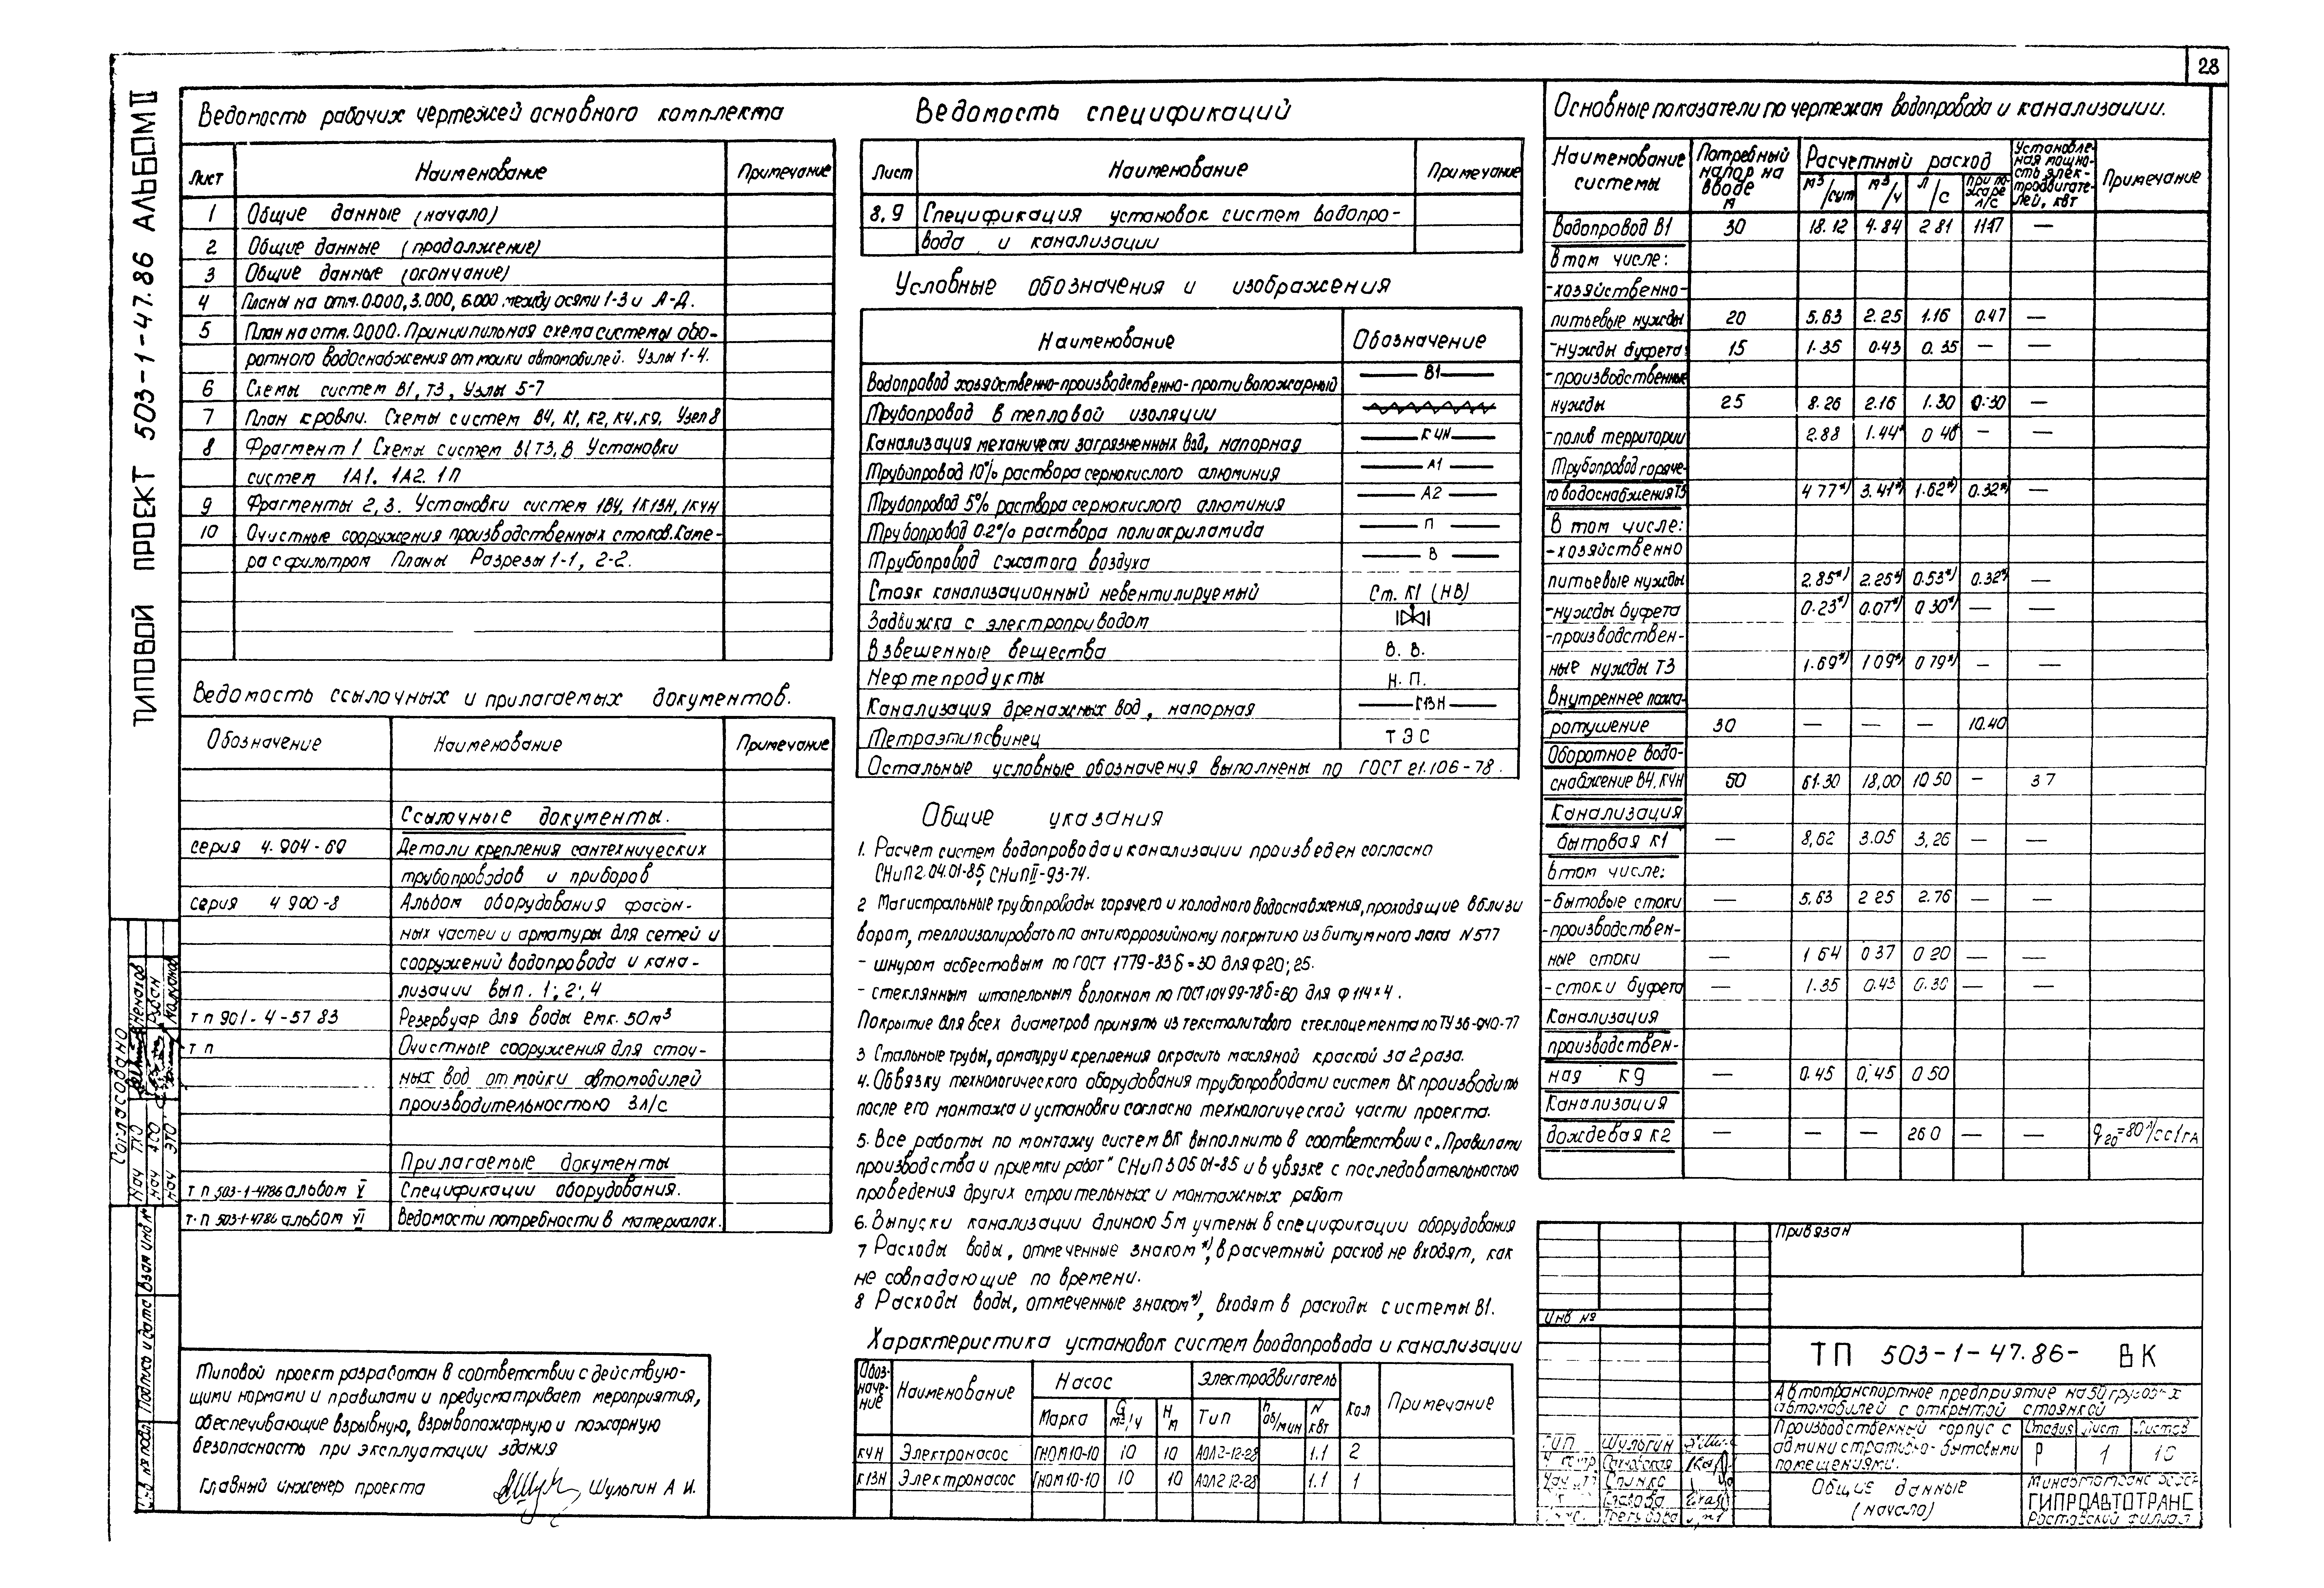 28
ТИПОВОЙ ПРОЕКТ 503-1-47.86 АЛЬБОМ II
Ведомость рабочих чертежей основного комплекта
Лист Наименование Примечание
1 Общие данные (начало)
2 Общие данные (продолжение)
3 Общие данные (окончание)
4 Планы на отм. 0.000, 3.000, 6.000 между осями 1-3 и А-Д.
5 План на отм. 0.000. Принципильная схема системы обо-
ротного водоснабжения от мойки автомобилей. Узлы 1-4.
6 Схемы систем В1, Т3, Узлы 5-7
7 План кровли. Схемы систем В4, К1, К2, К4, К9, Узел 8
8 Фрагмент 1 Схемы систем В1 Т3, В Установки
систем 1А1. 1А2. 1П
9 Фрагменты 2, 3. Установки систем 1В4, 1К13Н, 1К4Н
10 Очистные сооружения производственных стоков. Каме-
ра с фильтром Планы Разрезы 1-1, 2-2.
Ведомость ссылочных и прилагаемых документов.
Обозначение Наименование Примечание
Ссылочные документы.
серия 4.904-69 Детали крепления сантехнических
трубопроводов и приборов
серия 4 900-8 Альбом оборудования фасон-
ных частей и арматуры для сетей и
сооружений водопровода и кана-
лизации вып. 1; 2; 4
т п 901-4-57 83 Резервуар для воды емк. 50м³
т п Очистные сооружения для сточ-
ных вод от мойки автомобилей
производительностью 3л/с
Прилагаемые документы
т п 503-1-4786 альбом V Спецификации оборудования.
т. п 503-1-4786 альбом VI Ведомости потребности в материалах.
Типовой проект разработан в соответствии с действую-
щими нормами и правилами и предусматривает мероприятия,
обеспечивающие взрывную, взрывопожарную и пожарную
безопасность при эксплуатации здания
Главный инженер проекта Шульгин А И.
Ведомость спецификаций
Лист Наименование Примечание
8, 9 Спецификация установок систем водопро-
вода и канализации
Условные обозначения и изображения
Наименование Обозначение
Водопровод хозяйственно-производственно-противопожарный В1
Трубопровод в тепловой изоляции
Канализация механически загрязненных вод, напорная К4Н
Трубопровод 10% раствора сернокислого алюминия А1
Трубопровод 5% раствора сернокислого алюминия А2
Трубопровод 0.2% раствора полиакриламида П
Трубопровод сжатого воздуха В
Стояк канализационный невентилируемый Ст. К1 (НВ)
Задвижка с электроприводом
Взвешенные вещества В. В.
Нефтепродукты Н. П.
Канализация дренажных вод, напорная К13Н
Тетраэтилсвинец ТЭС
Остальные условные обозначения выполнены по ГОСТ 21.106-78.
Общие указания
1. Расчет систем водопровода и канализации произведен согласно
СНиП 2.04.01-85, СНиП II-93-74.
2 Магистральные трубопроводы горячего и холодного водоснабжения, проходящие вблизи
ворот, теплоизолировать по антикоррозийному покрытию из битумного лака N577
- шнуром асбестовым по ГОСТ 1779-83 б=30 для ф20; 25.
- стеклянным штапельным волокном по ГОСТ 10499-78 б=60 для ф 114×4.
Покрытие для всех диаметров принять из текстолитового стеклоцемента по ТУ 36-940-77
3 Стальные трубы, арматуру и крепления окрасить масляной краской за 2 раза.
4. Обвязку технологического оборудования трубопроводами систем ВК производить
после его монтажа и установки согласно технологической части проекта.
5. Все работы по монтажу систем ВК выполнить в соответствии с „Правилами
производства и приемки работ" СНиП 3 05 01-85 и в увязке с последовательностью
проведения других строительных и монтажных работ
6. Выпуски канализации длиною 5м учтены в спецификации оборудования
7 Расходы воды, отмеченные знаком *), в расчетный расход не входят, как
не совпадающие по времени.
8 Расходы воды, отмеченные знаком *), входят в расходы системы В1.
Характеристика установок систем воодопровода и канализации
Обоз-
наче-
ние Наименование Насос Электродвигатель Кол Примечание
Марка G м³/ч Н м Тип n об/мин N квт
К4Н Электронасос ГНОМ 10-10 10 10 АОЛ2-12-28 1.1 2
К13Н Электронасос ГНОМ 10-10 10 10 АОЛ2 12-28 1.1 1
Основные показатели по чертежам водопровода и канализации.
Наименование системы Потребный напор на вводе м Расчетный расход Установле-
ная мощно-
сть элек-
тродвигате-
лей, квт Примечание
м³/сут м³/ч л/с при по-
жаре л/с
Водопровод В1 30 18.12 4.84 2 81 1147 —
в том числе:
-хозяйственно-
питьевые нужды 20 5.63 2.25 1.16 0.47 —
-нужды буфета 15 1.35 0.43 0. 35 — —
-производственные
нужды 25 8.26 2.16 1.30 0.30 —
-полив территории 2.88 1.44 — —
Трубопровод горяче-
го водоснабжения Т3 4 77*) 3.41*) 1.62*) 0.32*) —
в том числе:
-хозяйственно
питьевые нужды 2.85*) 2.25*) 0.53*) 0.32*) —
-нужды буфета 0.23*) 0.07*) 0 30*) — —
-производствен-
ные нужды Т3 1.69*) 1 09*) 0 79*) — —
Внутреннее пожа-
ротушение 30 — — — 10.40
Оборотное водо-
снабжение В4, К4Н 50 61.30 18,00 10 50 — 3 7
Канализация
бытовая К1 — 8,62 3.05 3, 26 — —
в том числе:
-бытовые стоки — 5,63 2 25 2.76 — —
-производствен-
ные стоки — 1 64 0 37 0 20 — —
-стоки буфета — 1.35 0.43 0.30 — —
Канализация
производствен-
ная К9 — 0.45 0,45 0 50
Канализация
дождевая К2 — — — 26 0 — — q20=80 л/сс1га
Привязан
Инв №
ТП 503-1-47.86- ВК
Автотранспортное предприятие на 50 грузовых
автомобилей с открытой стоянкой
Производственный корпус с
административно-бытовыми
помещениями.
Стадия Лист Листов
Р 1 10
Общие данные
(начало)
ГИПРОАВТОТРАНС
Ростовский филиал
ГИП Шульгин
Согласовано
Нач ТХО
Нач АСО
Нач ЭТО
Взам инв №
Подпись и дата
Инв № подл.